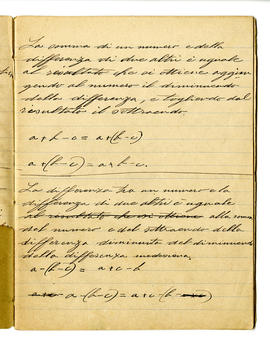 La somma di un numero e della
differenza di due altri è uguale
al resultato che si ottiene aggiun
gendo al numero il diminuendo
della differenza, e togliendo dal
resultato il sottraendo.
a + b - c = a + (b - c)
a + (b - c) = a + b - c.
La differenza tra un numero e la
differenza di due altri è uguale
al resultato che si ottiene alla somma
del numero e del sottraendo della
differenza diminuita del diminuendo
della differenza medesima.
a - (b - c) = a + c - b
a - (b - c) = a + c - (b